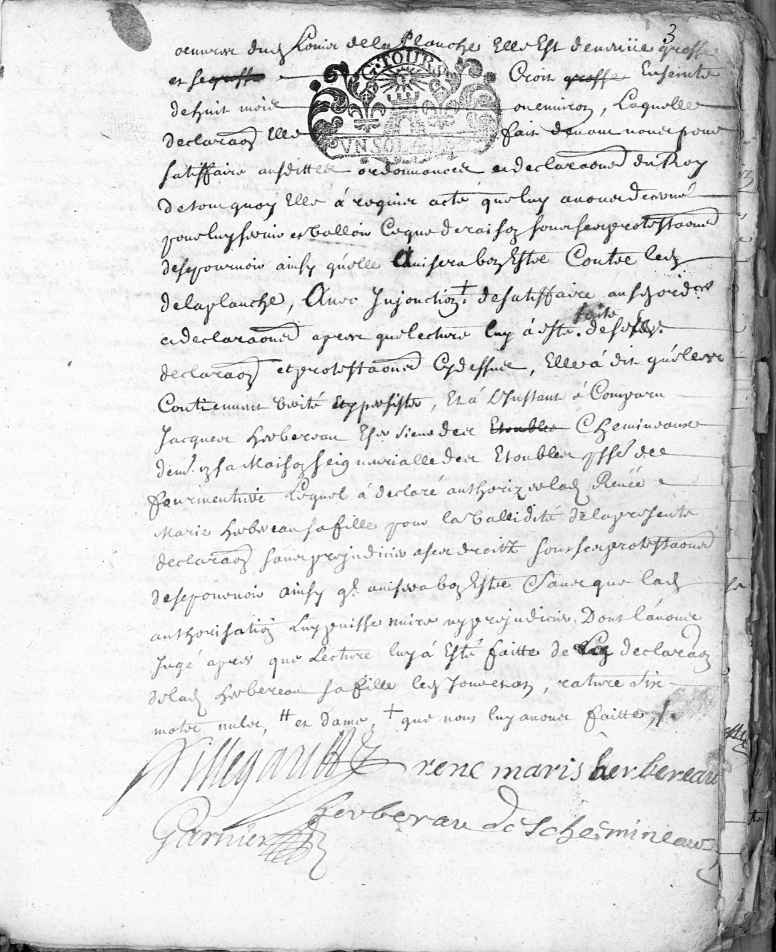 3
oeuvres dud Louis de la Planche Elle Est devenüe grosse
et se grosse Croit grosse Enseinte
G. TOURS
de huit mois ou environ, Laquelle
declaraōn Elle fait devant nous pour
VN SOL
satisffaire ausdittes ordonnances et declaraōns du Roy
de tout quoy Elle á requis acte que luy avons decerné
pour luy servir et valloir Ce que de raison sous ses protestaōns
de se pourvoir ainsy qu'elle avisera bon Estre Contre led
de la planche, Avec Injonction + de satisffaire ausd ord.ces
et declaraōns apres que lecture luy á esté faite de sesd.
declaraōn et protestaōns Cy dessus, Elle á dit qu'elles
Contiennent verité et y persister, Et á L'Instant á Comparu
Jacques herbereau Esc Sieur des Etouble Chemineaux
dem.t en sa Maison seigneurialle des Etoubles psse de
fourmentieres Lequel á declaré authoriser lad Renée
Marie herbereau sa fille pour la vallidité de la presente
declaraōn sans prejudicier a ses droits sous ses protestaōns
de se pourvoir ainsy q.l avisera bon Estre Sans que lad
authorisation Luy puisse nuire ny prejudicier, Dont l'avons
Jugé apres que Lecture luy á Esté faitte de La declaraōn
de lad herbereau sa fille led Jour et an, rature six
mots nulles, # et dame, + que nous luy avons faitte,
rene maris herbereau
herberau de Schesmineaux
Garnier